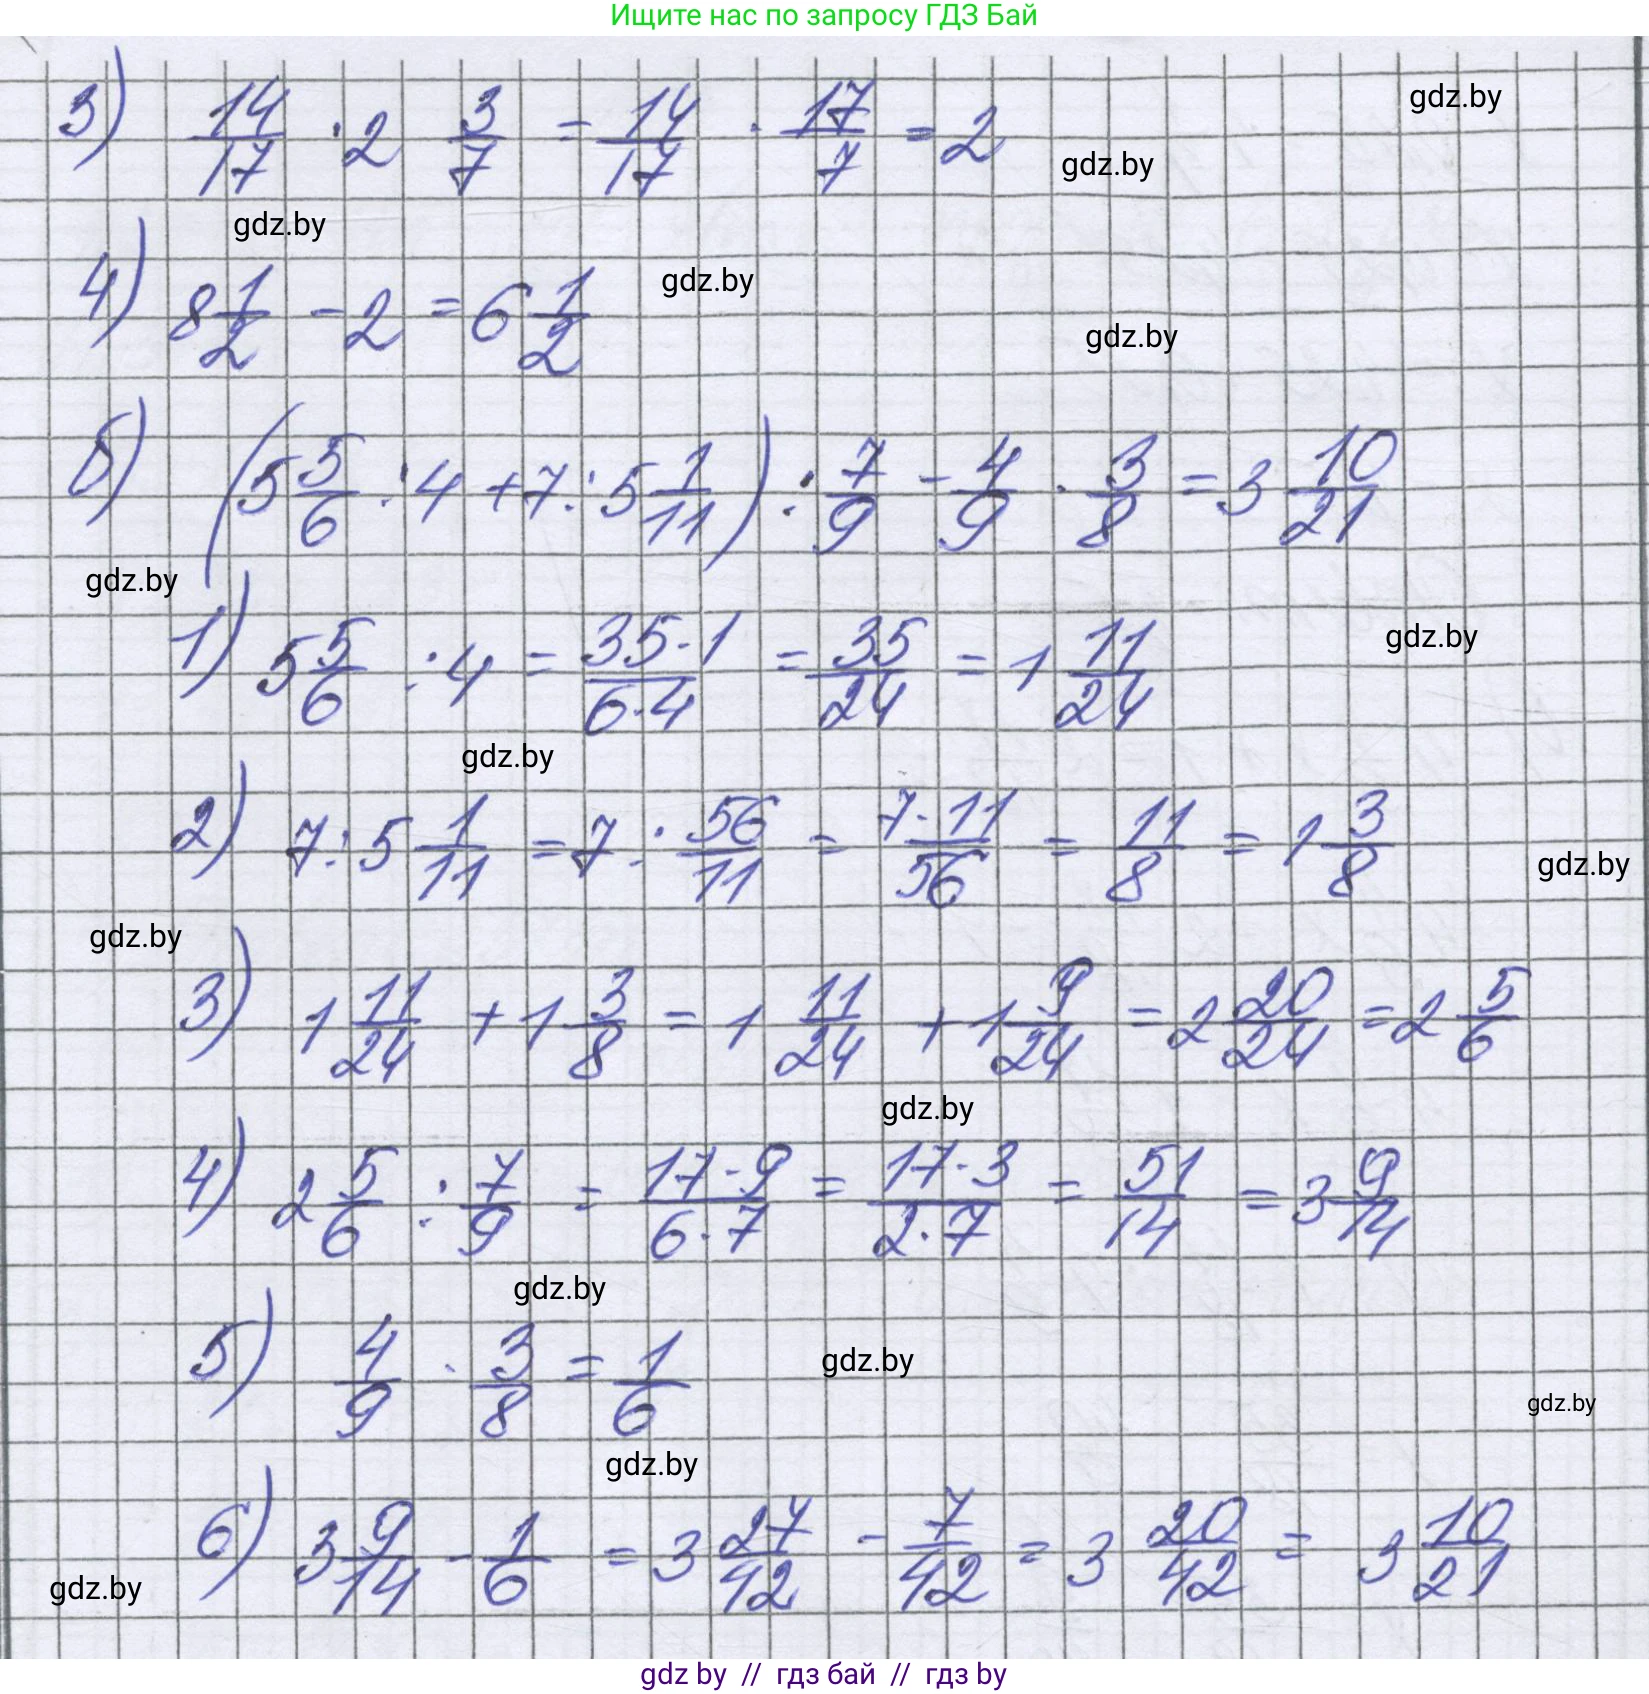 Ищите нас по запросу ГДЗ Бай
3) 14/17 · 2 3/7 = 14/17 · 17/7 = 2
gdz.by
gdz.by
gdz.by
4) 8 1/2 - 2 = 6 1/2
gdz.by
gdz.by
б) (5 5/6 : 4 + 7 : 5 1/11) : 7/9 - 4/9 · 3/8 = 3 10/21
gdz.by
1) 5 5/6 : 4 = 35·1/6·4 = 35/24 = 1 11/24
gdz.by
gdz.by
2) 7 : 5 1/11 = 7 : 56/11 = 7·11/56 = 11/8 = 1 3/8
gdz.by
gdz.by
3) 1 11/24 + 1 3/8 = 1 11/24 + 1 9/24 = 2 20/24 = 2 5/6
gdz.by
4) 2 5/6 : 7/9 = 17·9/6·7 = 17·3/2·7 = 51/14 = 3 9/14
gdz.by
5) 4/9 · 3/8 = 1/6
gdz.by
gdz.by
gdz.by
6) 3 9/14 - 1/6 = 3 27/42 - 7/42 = 3 20/42 = 3 10/21
gdz.by
gdz by // гдз бай // гдз by